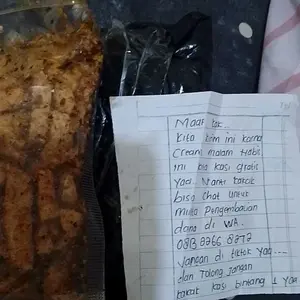 Maaf kak
Kita kirim ini karna
Cream malam Habis
ini bia kasi gratis
yaa. Nanti kakak
bisa chat untuk
minta Pengembalian
dana di WA.
0813 8266 8272
Jangan di tiktok yaa...
dan Tolong Jangan
kakak kasi bintang 1 yaa